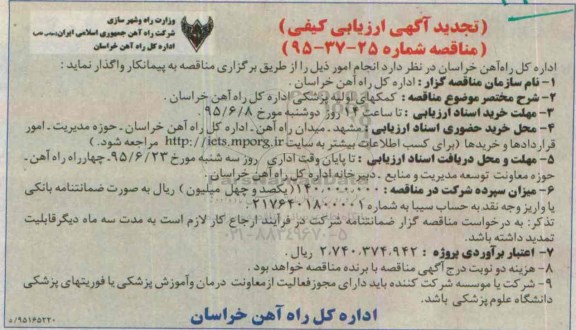 وزارت راه وشهر سازی
شرکت راه آهن جمهوری اسلامی ایران(سهامی خاص)
اداره کل راه آهن خراسان
(تجدید آگهی ارزیابی کیفی)
(مناقصه شماره ۲۵-۳۷-۹۵)
اداره کل راه‌آهن خراسان در نظر دارد انجام امور ذیل را از طریق برگزاری مناقصه به پیمانکار واگذار نماید :
۱- نام سازمان مناقصه گزار : اداره کل راه آهن خراسان .
۲- شرح مختصر موضوع مناقصه : کمکهای اولیه پزشکی اداره کل راه آهن خراسان .
۳- مهلت خرید اسناد ارزیابی : تا ساعت ۱۴ روز دوشنبه مورخ ۹۵/۶/۸ .
۴- محل خرید حضوری اسناد ارزیابی : مشهد ـ میدان راه آهن ـ اداره کل راه آهن خراسان ـ حوزه مدیریت ـ امور
قراردادها و خریدها (برای کسب اطلاعات بیشتر به سایت http://iets.mporg.ir مراجعه شود.)
۵- مهلت و محل دریافت اسناد ارزیابی : تا پایان وقت اداری روز سه شنبه مورخ ۹۵/۶/۲۳ـ چهارراه راه آهن ـ
حوزه معاونت توسعه مدیریت و منابع ـ دبیرخانه اداره کل راه آهن خراسان .
۶- میزان سپرده شرکت در مناقصه : ۱۴۰.۰۰۰.۰۰۰ (یکصد و چهل میلیون) ریال به صورت ضمانتنامه بانکی
یا واریز وجه نقد به حساب سیبا به شماره ۲۱۷۶۴۰۱۸۰۰۰۰۱ .
تذکر: به درخواست مناقصه گزار ضمانتنامه شرکت در فرآیند ارجاع کار لازم است به مدت سه ماه دیگر قابلیت
تمدید داشته باشد.
۷- اعتبار برآوردی پروژه : ۲،۷۴۰،۳۷۴،۹۴۲ ریال .
۸- هزینه دو نوبت درج آگهی مناقصه با برنده مناقصه خواهد بود .
۹- شرکت یا موسسه شرکت کننده باید دارای مجوز فعالیت از معاونت درمان وآموزش پزشکی یا فوریتهای پزشکی
دانشگاه علوم پزشکی باشد.
اداره کل راه آهن خراسان
۹۵۱۶۵۲۲۰/د
۰۲۱-۸۸۳۴۹۶۷۰-۵